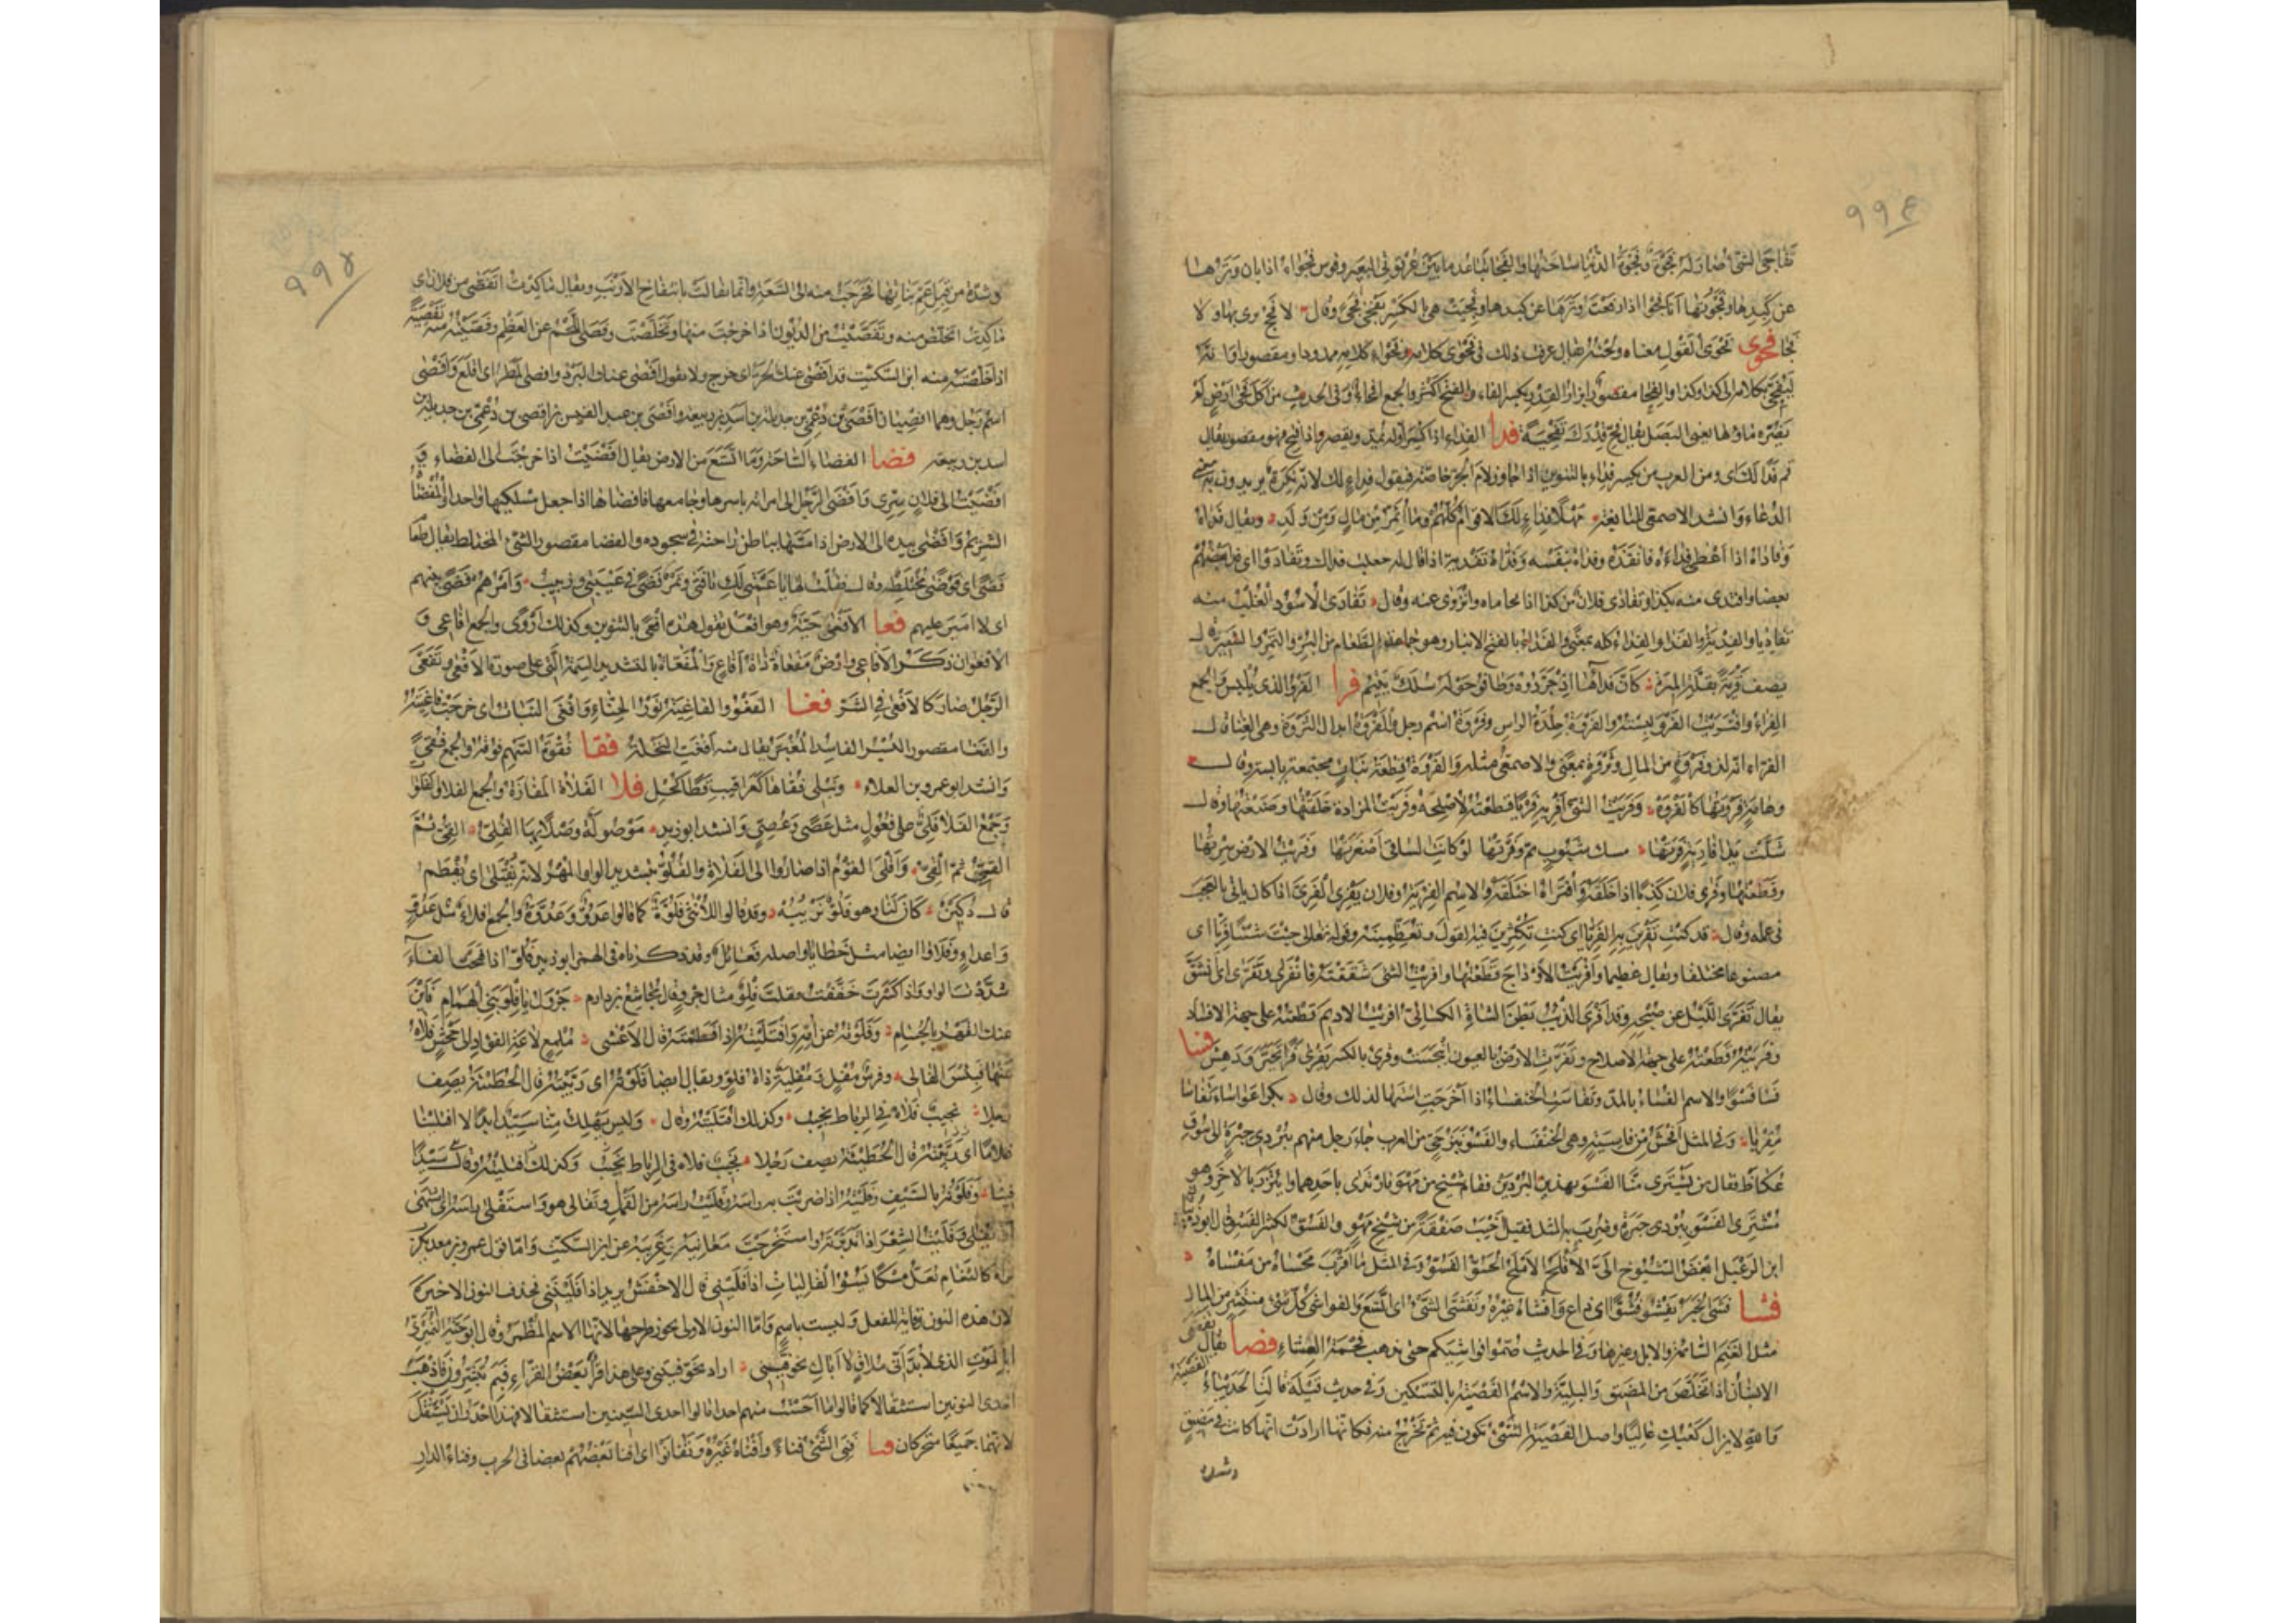 ٩٩٤
تفاجى الشئ صار له فجوة وفجوة الدنيا ساحتها والفجا تباعد ما بين عرقوبى البعير وقوس فجواء اذا بان وترها
عن كبدها وفجوتها انا فجوا اذا رفعت وترها عن كبدها وفجيت هى بالكسر تفجى فجى وقال لا فحج يرى بها ولا
فجا فحوى فحوى القول معناه ولحنه يقال عرفت ذلك فى فحوى كلامه وفحواء كلامه ممدودا ومقصورا وانه
ليفحى بكلامه الى كذا وكذا والفحا مقصور ابزار القدر بكسر الفاء والفتح اكثر والجمع افحاء وفى الحديث من اكل فحا ارض لم
يضره ماؤها يعنى البصل يقال فح قدرك تفحية فدا الفداء اذا كسر اوله يمد ويقصر واذا فتح فهو مقصور يقال
قم فدا لك ابى ومن العرب من يكسر فداء بالتنوين اذا جاور لام الجر خاصة فيقول فداء لك لانه نكرة يريدون به معنى
الدعاء وانشد الاصمعى للنابغة مهلا فداء لك الاقوام كلهم وما اثمر من مال ومن ولد ويقال فداه
وفاداه اذا اعطى فداءه فانقذه وفداه بنفسه وفداه تفدية اذا قال له جعلت فداك وتفادوا اى فدى بعضهم
بعضا وافتدى منه بكذا وتفادى فلان من كذا اذا تحاماه وانزوى عنه وقال تفادى الاسود الغلب منه
تفاديا والفدية والفدا والفداء كله بمعنى والفداء بالفتح الانبار وهو جماعة الطعام من البر والتمر والشعير قال
يصف قرية بقلة الميرة كان فداءها اذ جردوه وطافوا حوله سلك يتيم فرا الفرو الذى يلبس والجمع
الفراء وافتريت الفرو لبسته والفروة جلدة الراس وفروة اسم رجل والفروة ابدال الثروة وهى الغنا قال
الفراء انه لذو فروة من المال وثروة بمعنى والاصمعى مثله والفروة قطعة نبات مجتمعة يابسة وقال
وهامة فروتها كالفروة وفريت الشئ افريه فريا قطعته لاصلحه وفريت المزادة خلقتها وصنعتها وقال
شلت يدا فارية فرتها مسك شبوب ثم وفرتها لو كانت الساقى اصغرتها وفريت الارض سرتها
وقطعتها وفرى فلان كذبا اذا خلقه وافتراه اختلقه والاسم الفرية وفلان يفرى الفرى اذا كان ياتى بالعجب
فى عمله وقال قد كنت تفرين به الفريا اى كنت تكثرين فيه القول وتعظمينه وقوله تعالى جئت شيئا فريا اى
مصنوعا مختلقا ويقال عظيما وافريت الاوداج قطعتها وافريت الشئ شققته فانفرى وتفرى اى انشق
يقال تفرى الليل عن صبحه وقد افرى الذئب بطن الشاة الكسائى افريت الاديم قطعته على جهة الافساد
وفريته قطعته على جهة الاصلاح وتفرت الارض بالعيون انبجست وفرى بالكسر يفرى فرا تحير ودهش فسا
فسا فسوا والاسم الفساء بالمد وتفاست الخنفساء اذا اخرجت استها لذلك وقال بكرا عواساء تفاسا
مقربا وفى المثل افحش من فاسية وهى الخنفساء والفسو نبز حى من العرب جاء رجل منهم ببردى حبرة الى سوق
عكاظ فقال من يشترى منا الفسو بهذين البردين فقام شيخ من مهو فارتدى باحدهما وائتزر بالاخر وهو
مشترى الفسو ببردى حبرة وضرب به المثل فقيل اخيب صفقة من شيخ مهو والفسو الكثير الفسو قال ابو ذبيان
ابن الرعبل ابغض الشيوخ الى الاقلح الاملح الحسو الفسو وفى المثل ما اقرب محساه من مفساه
فشا فشى الخبر يفشو فشوا اى ذاع وافشاه غيره وتفشى الشئ اى اتسع والفواشى كل شئ منتشر من المال
مثل الغنم السائمة والابل وغيرها وفى الحديث ضموا فواشيكم حتى تذهب فحمة العشاء فصا يقال تفصى
الانسان اذا تخلص من المضيق والبلية والاسم الفصية بالتسكين وفى حديث قيلة قالت الحديباء الفصية
والله لا يزال كعبك عاليا واصل الفصية الشئ تكون فيه ثم تخرج منه فكانها ارادت انها كانت فى ضيق
وشدة
٩٩٥
وشدة من قبل عم بناتها فخرجت منه الى السعة وانما تفالت بانتفاج الارنب ويقال ما كدت اتفصى من فلان اى
ما كدت اتخلص منه وتفصيت من الديون اذا خرجت منها وتخلصت وفصى اللحم عن العظم وفصيته منه تفصية
اذا خلصته منه ابن السكيت قد افصى عنك الحر اى خرج ولا يقول افصى عنك البرد وافصى المطر اى اقلع وافصى
اسم رجل وهما افصيان افصى بن دعمى بن جديلة بن اسد بن ربيعة وافصى بن عبد القيس بن افصى بن دعمى بن جديلة بن
اسد بن ربيعة فضا الفضاء الساحة وما اتسع من الارض يقال افضيت اذا خرجت الى الفضاء و
افضيت الى فلان بسرى وافضى الرجل الى امراته باسرها وجامعها فافضاها اذا جعل مسلكيها واحدا والمفضاة
الشريم وافضى بيده الى الارض اذا مسها بباطن راحته فى سجوده والفضا مقصور الشئ المختلط يقال طعام
فضى اى فوضى مختلط وقال فقلت لها يا عمتى لك ناقتى وتمر فضى فى عيبتى وزبيب وامرهم فضى بينهم
اى لا امير عليهم فعا الافعى حية وهو افعل تقول هذه افعى بالتنوين وكذلك اروى والجمع افاعى و
الافعوان ذكر الافاعى وارض مفعاة ذات افاع والمفعاة بالتشديد السمة التى على صورة الافعى وتفعى
الرجل صار كالافعى فى الشر فغا الفغو والفاغية نور الحناء وافغى النبات اى خرجت فاغيته
والفغا مقصور البسر الفاسد المغبر يقال منه افغت النخلة فقا فقوة السهم فوقه والجمع فقى
وانشد ابو عمرو بن العلاء ونبلى وفقاها كعراقيب قطا طحل فلا الفلاة المفازة والجمع الفلا والفلوات
وجمع الفلا فلى على فعول مثل عصى وعصى وانشد ابو زيد موصولة وصلا بها الفلى القى ثم
القى ثم القى وافلى القوم اذا صاروا الى الفلاة والفلو بتشديد الواو المهر لانه يفتلى اى يفطم
قال دكين كان لنا وهو فلو نربيه وقد قالوا للانثى فلوة كما قالوا عدو وعدوة والجمع افلاء مثل عدو
واعداء وفلاوى ايضا مثل خطايا واصله فعائل وقد ذكرناه فى الهمز ابو زيد فلو اذا فتحت الفاء
شددت الواو واذا كسرت خففت فقلت فلو مثال جرو قال مجاشع بن دارم جرول يا فلو بنى الهمام فاين
عنك القهر بالحسام وفلوته عن امه وافتليته اذا فطمته قال الاعشى ملمع لاعة الفؤاد الى جحش فلاه
عنها فبئس الفالى وفرس مفل ومفلية ذات فلو ويقال ايضا فلوته اى ربيته قال الحطيئة يصف
رجلا نجيب فلاه فى الرباط نجيب وكذلك افتليته وقال وليس يهلك منا سيد ابدا الا افتلينا
غلاما اى ربيته قال الحطيئة يصف رجلا نجيب فلاه فى الرباط نجيب وكذلك افتليته وقال سيدا
فينا وفلوته بالسيف وفليته اذا ضربت به راسه وفليت راسه من القمل وتفالى هو واستفلى راسه اى اشتهى
ان يفلى وفليت الشعر اذا تدبرته واستخرجت معانيه وغريبه عن ابن السكيت واما قول عمرو بن معد يكرب
تراه كالثغام يعل مسكا يسوء الفاليات اذا فلينى قال الاخفش يريد اذا فليننى فحذف النون الاخيرة
لان هذه النون وقاية للفعل وليست باسم واما النون الاولى فلا يجوز طرحها لانها الاسم المضمر وقال ابو حية النميرى
ابالموت الذى لا بد انى ملاق لا اباك تخوفينى اراد تخوفيننى وعلى هذا قرا بعض القراء فبم تبشرون فاذهب
احدى النونين استثقالا كما قالوا ما احست منهم احدا فالقوا احدى السينين استثقالا فهذا اجدر ان يستثقل
لانهما جميعا متحركان فنا فنى الشئ فناء وافناه غيره وتفانوا اى افنى بعضهم بعضا فى الحرب وفناء الدار